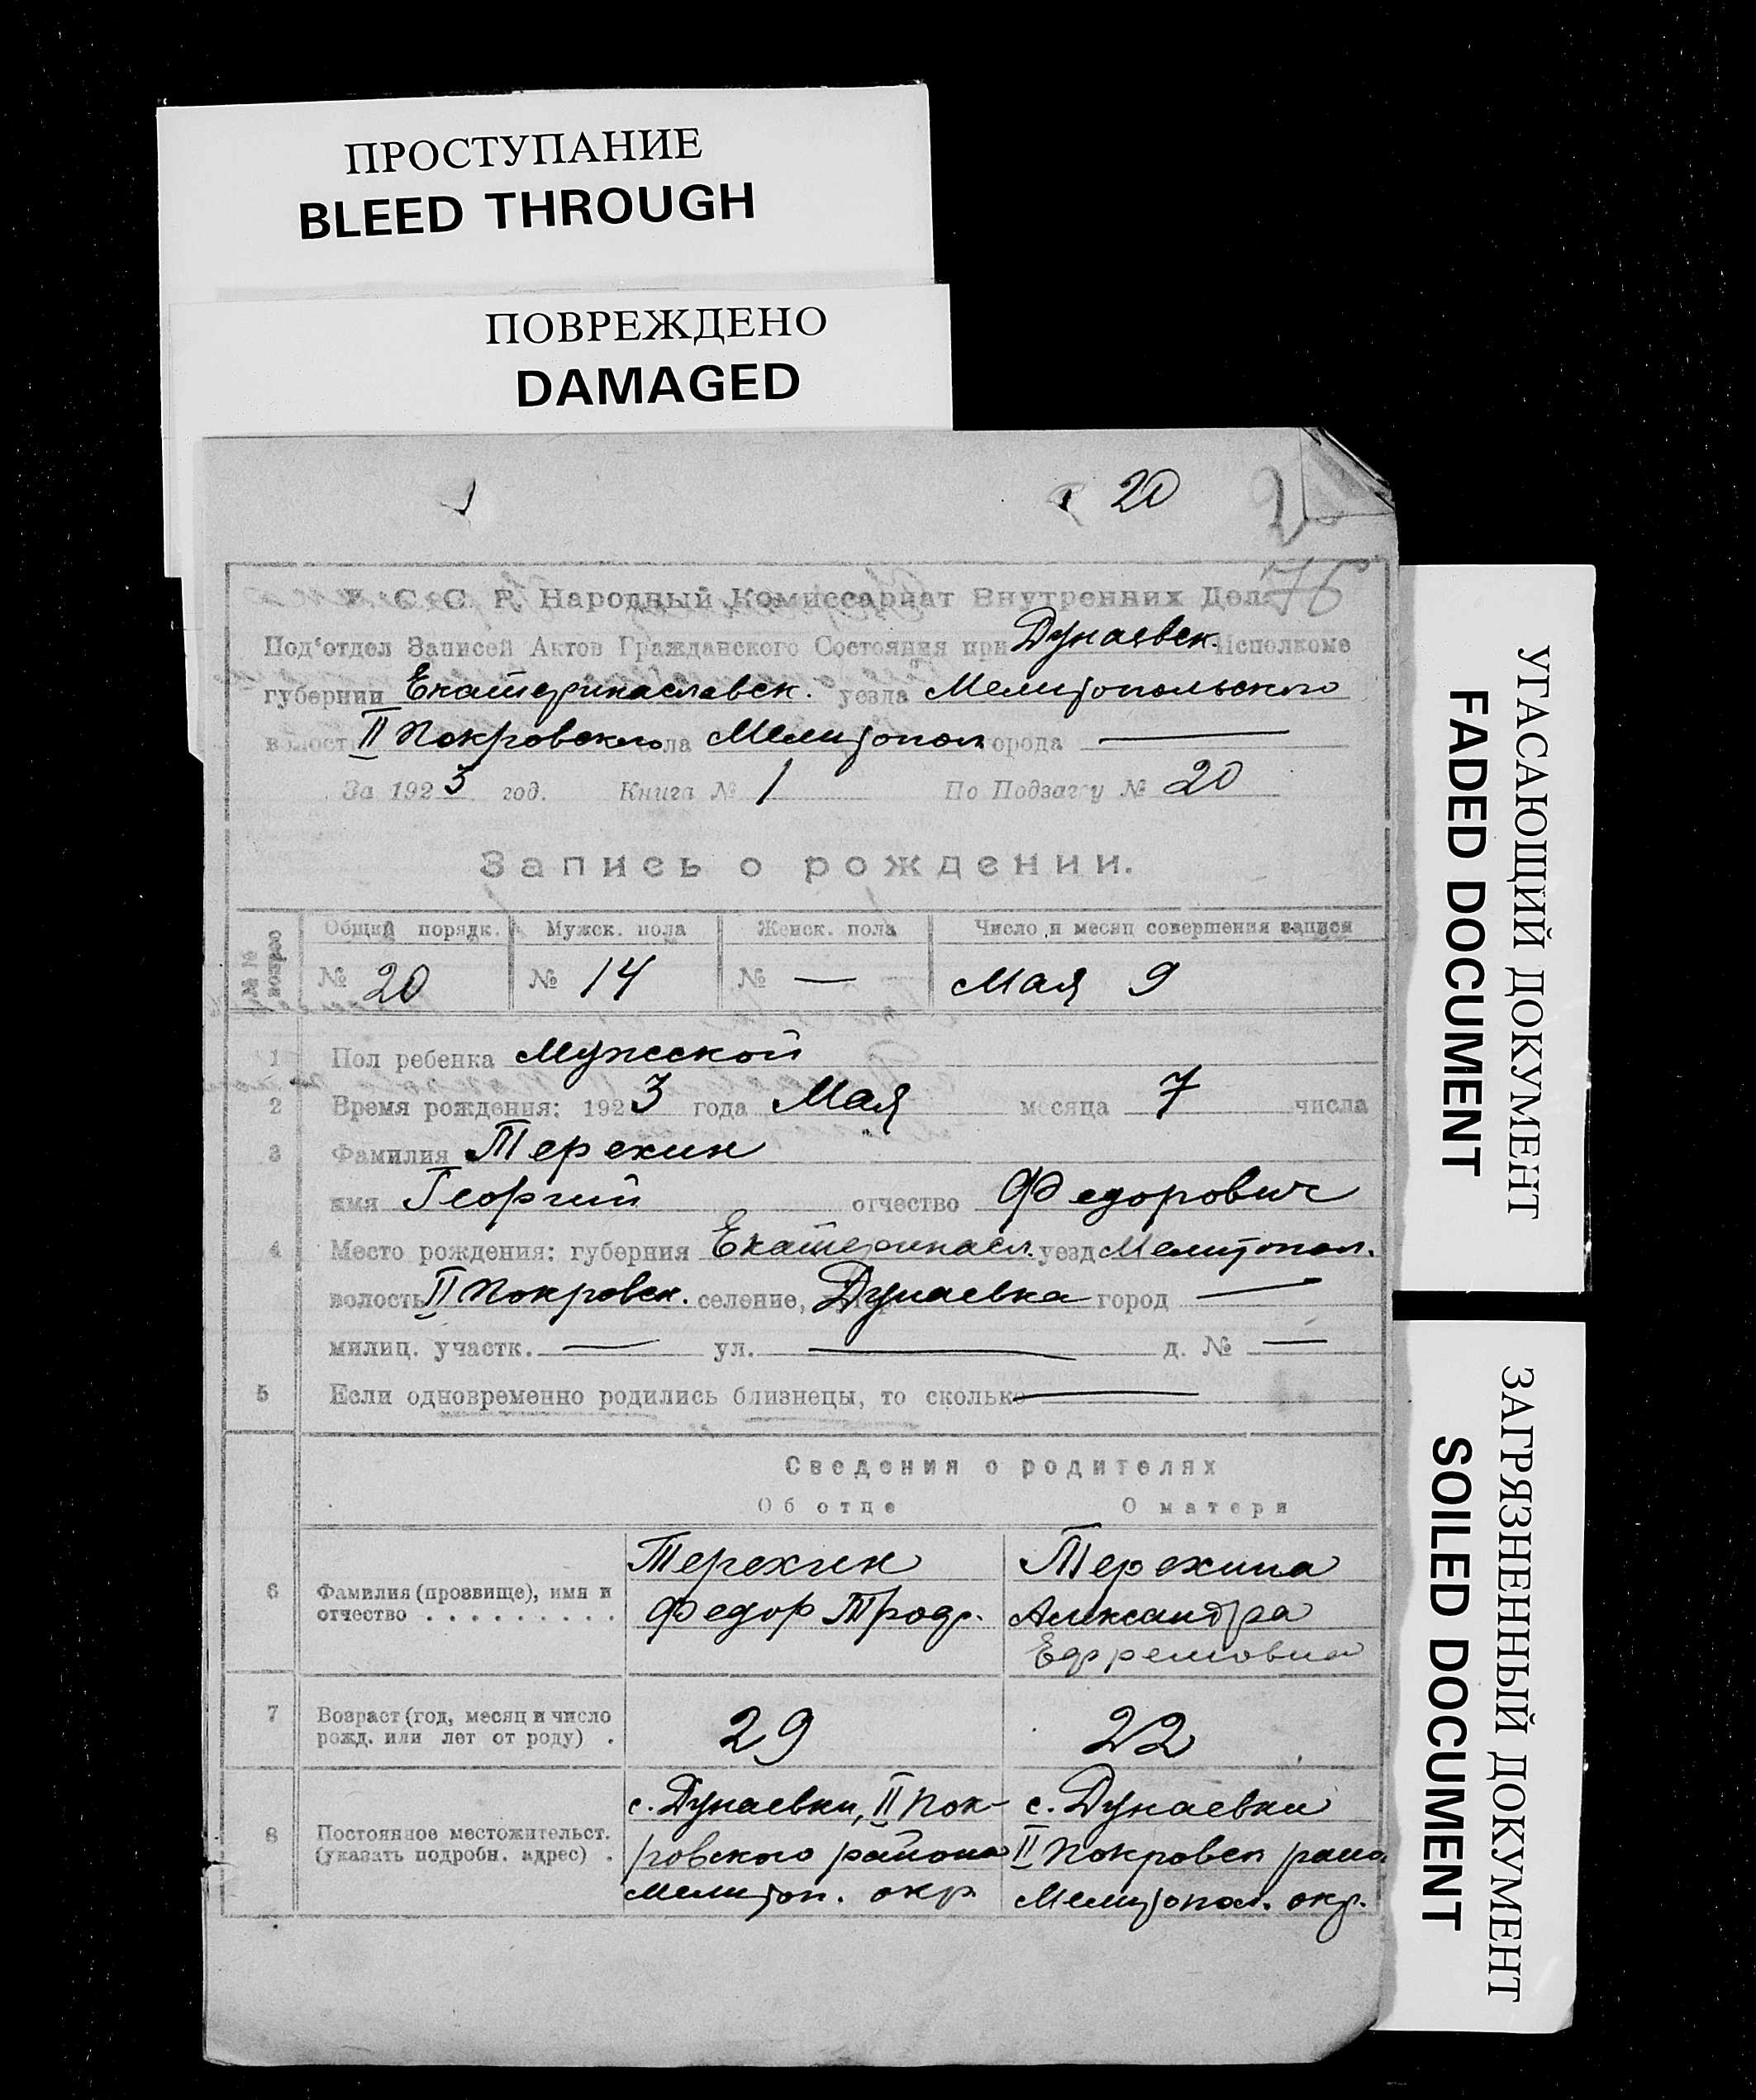 ПРОСТУПАНИЕ
BLEED THROUGH
ПОВРЕЖДЕНО
DAMAGED
20
76
У. С. С. Р. Народный Комиссариат Внутренних Дел
Под'отдел Записей Актов Гражданского Состояния при Дунаевск. Исполкоме
губернии Екатеринаславск. уезда Мелитопольского
волости II Покровского Мелитопол города —
За 1923 год. Книга № 1 По Подзагсу № 20
Запись о рождении.
№№ вопросов Общий порядк. Мужск. пола Женск. пола Число и месяц совершения записи
№ 20 № 14 № — Мая 9
1 Пол ребенка Мужской
2 Время рождения: 1923 года Мая месяца 7 числа
3 Фамилия Терехин
имя Георгий отчество Федорович
4 Место рождения: губерния Екатеринасл. уезд Мелитопол.
волость II Покровск. селение, Дунаевка город —
милиц. участк. — ул. — д. № —
5 Если одновременно родились близнецы, то сколько —
Сведения о родителях
Об отце О матери
6 Фамилия (прозвище), имя и отчество . . . . . . . . .
Терехин
Федор Трод.
Терехина
Александра
Ефремовна
7 Возраст (год, месяц и число рожд. или лет от роду) .
29
22
8 Постоянное местожительст. (указать подробн. адрес) .
с. Дунаевки, II Пок-
ровского района
Мелитоп. окр
с. Дунаевки
II Покровск райо
Мелитопол. окр.
УГАСАЮЩИЙ ДОКУМЕНТ
FADED DOCUMENT
ЗАГРЯЗНЕННЫЙ ДОКУМЕНТ
SOILED DOCUMENT